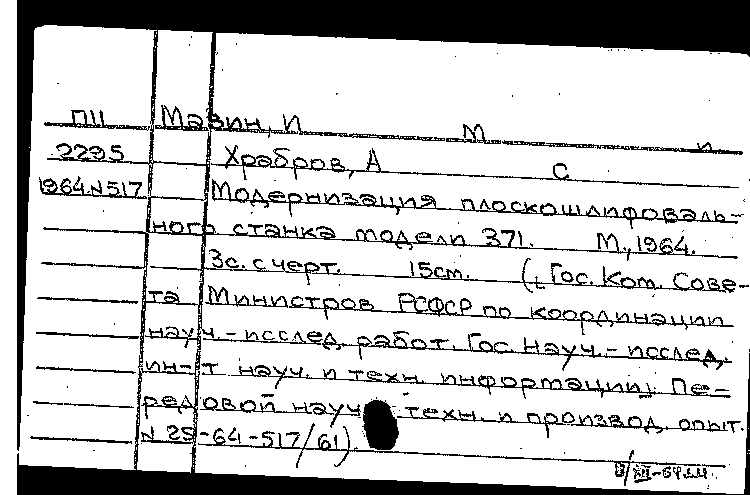 П11 Мазин, И М и
2295 Храбров, А С
1964.N517 Модернизация плоскошлифоваль-
ного станка модели 371. М., 1964.
3с. с черт. 15см. (Гос. Ком. Сове-
та Министров РСФСР по координации
науч.-исслед. работ. Гос. Науч.-исслед.
ин-т науч. и техн. информации. Пе-
редовой науч. техн. и производ. опыт.
N 25-64-517/61)